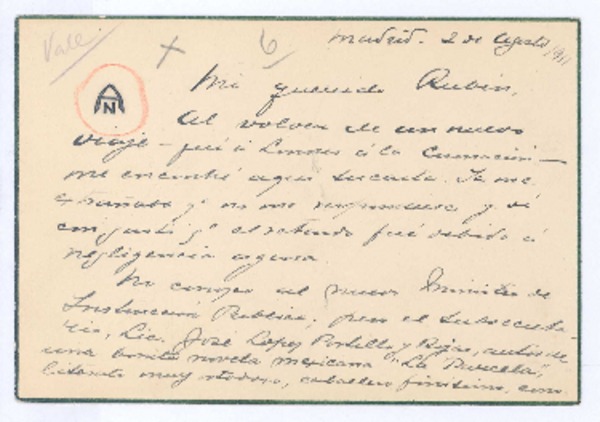 Valle
6
Madrid. 2 de Agosto/911
AN
Mi querido Rubén,
Al volver de un nuevo
viaje – fuí a Londres á la Coronación –
me encontré aquí su carta. Ya me
extrañaba qe no me respondiera y vi
con gusto qe el retardo fué debido á
negligencia ajena.
No conozco al nuevo Ministro de
Instrucción Pública; pero el Subsecreta-
rio, Lic. José López Portillo y Rojas, autor de
una bonita novela mexicana "La Parcela",
literato muy, caballero finísimo, como